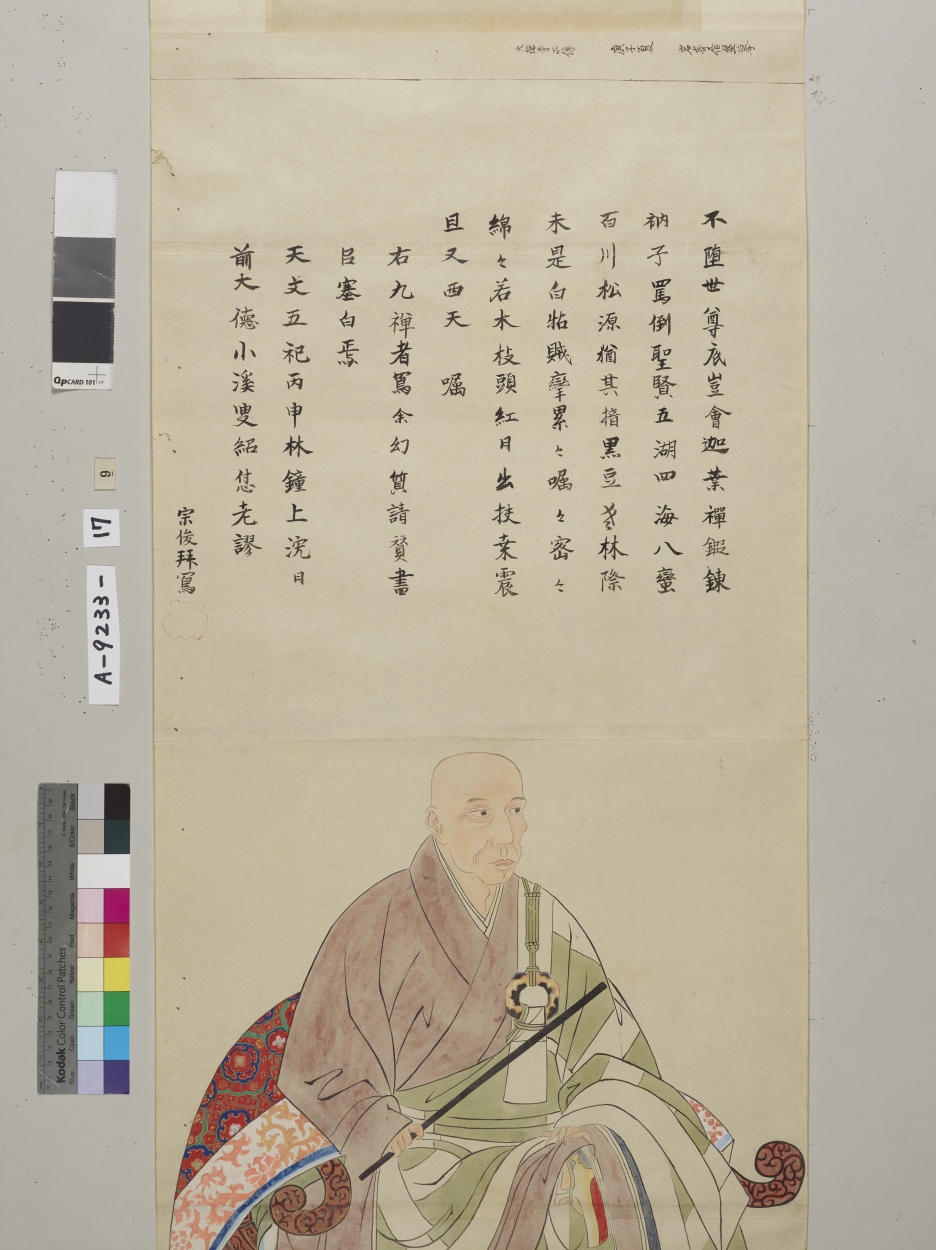 不堕世尊底豈會迦葉禪鍛錬
衲子罵倒聖賢五湖四海八蠻
百川松源猶其揞黒豆老林際
未是白拈賊攣累々嘱々密々
綿々若木枝頭紅日出扶桒震
旦又西天 嘱
右九禅者寫余幻質請賛書
㠯塞白焉
天文五祀丙申林鐘上浣日
前大德小溪叟紹怤老謬
宗俊拜寫
庚子夏
QPCARD 101
9
17
A-9233-
Kodak Color Control Patches
Blue Cyan Green Yellow Red Magenta White 3/Color Black